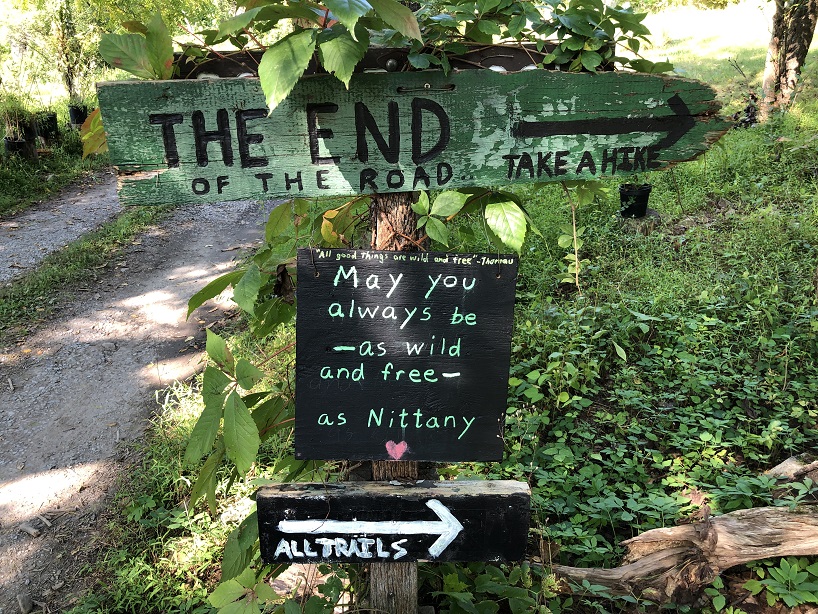 THE END
OF THE ROAD..
TAKE A HIKE
"All good things are wild and free" -Thoreau
May you
always be
—as wild
and free—
as Nittany
ALL TRAILS